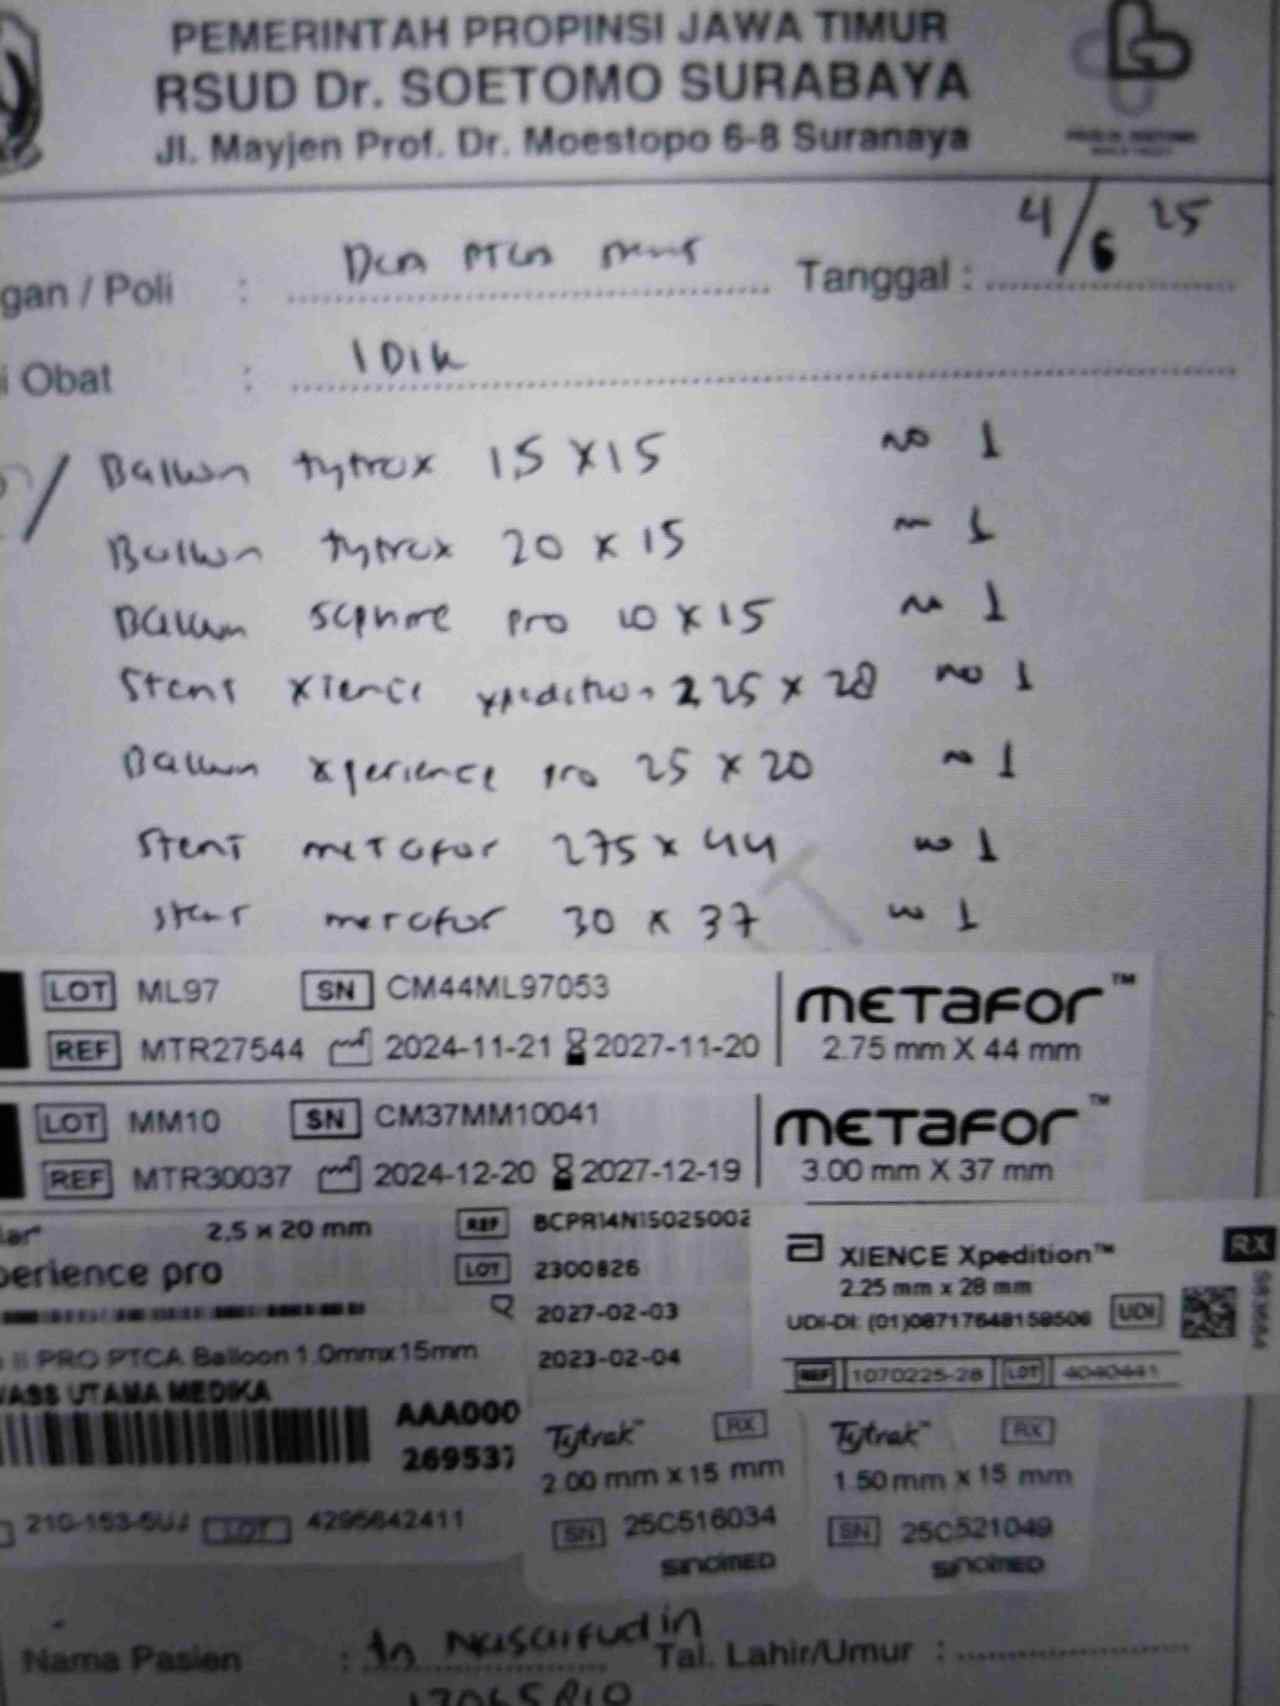 PEMERINTAH PROPINSI JAWA TIMUR
RSUD Dr. SOETOMO SURABAYA
Jl. Mayjen Prof. Dr. Moestopo 6-8 Suranaya
gan / Poli : Tanggal : 4/6 25
i Obat : IDIK
Ballon tytrax 1.5 x 15 no 1
Ballon tytrax 20 x 15 no 1
Ballon scphire pro 10 x 15 no 1
Stent xience xpedition 225 x 28 no 1
Ballon xperience pro 25 x 20 no 1
Stent metafor 275 x 44 no 1
Stent metafor 30 x 37 no 1
LOT ML97 SN CM44ML97053 METAFOR™
REF MTR27544 2024-11-21 2027-11-20 2.75 mm X 44 mm
LOT MM10 SN CM37MM10041 METAFOR™
REF MTR30037 2024-12-20 2027-12-19 3.00 mm X 37 mm
2.5 x 20 mm REF BCPR14N15025002
perience pro LOT 2300826
2027-02-03
2023-02-04
XIENCE Xpedition™ RX
2.25 mm x 28 mm
UDI-DI: (01)08717648158506 UDI
REF 1070225-28 LOT 4040441
II PRO PTCA Balloon 1.0mmx15mm
WASS UTAMA MEDIKA
AAA000
269537
LOT 4295642411
Tytrak™ RX
2.00 mm x 15 mm
SN 25C516034
SINOMED
Tytrak™ RX
1.50 mm x 15 mm
SN 25C521049
SINOMED
Nama Pasien : tn Nasaifudin Tal. Lahir/Umur :